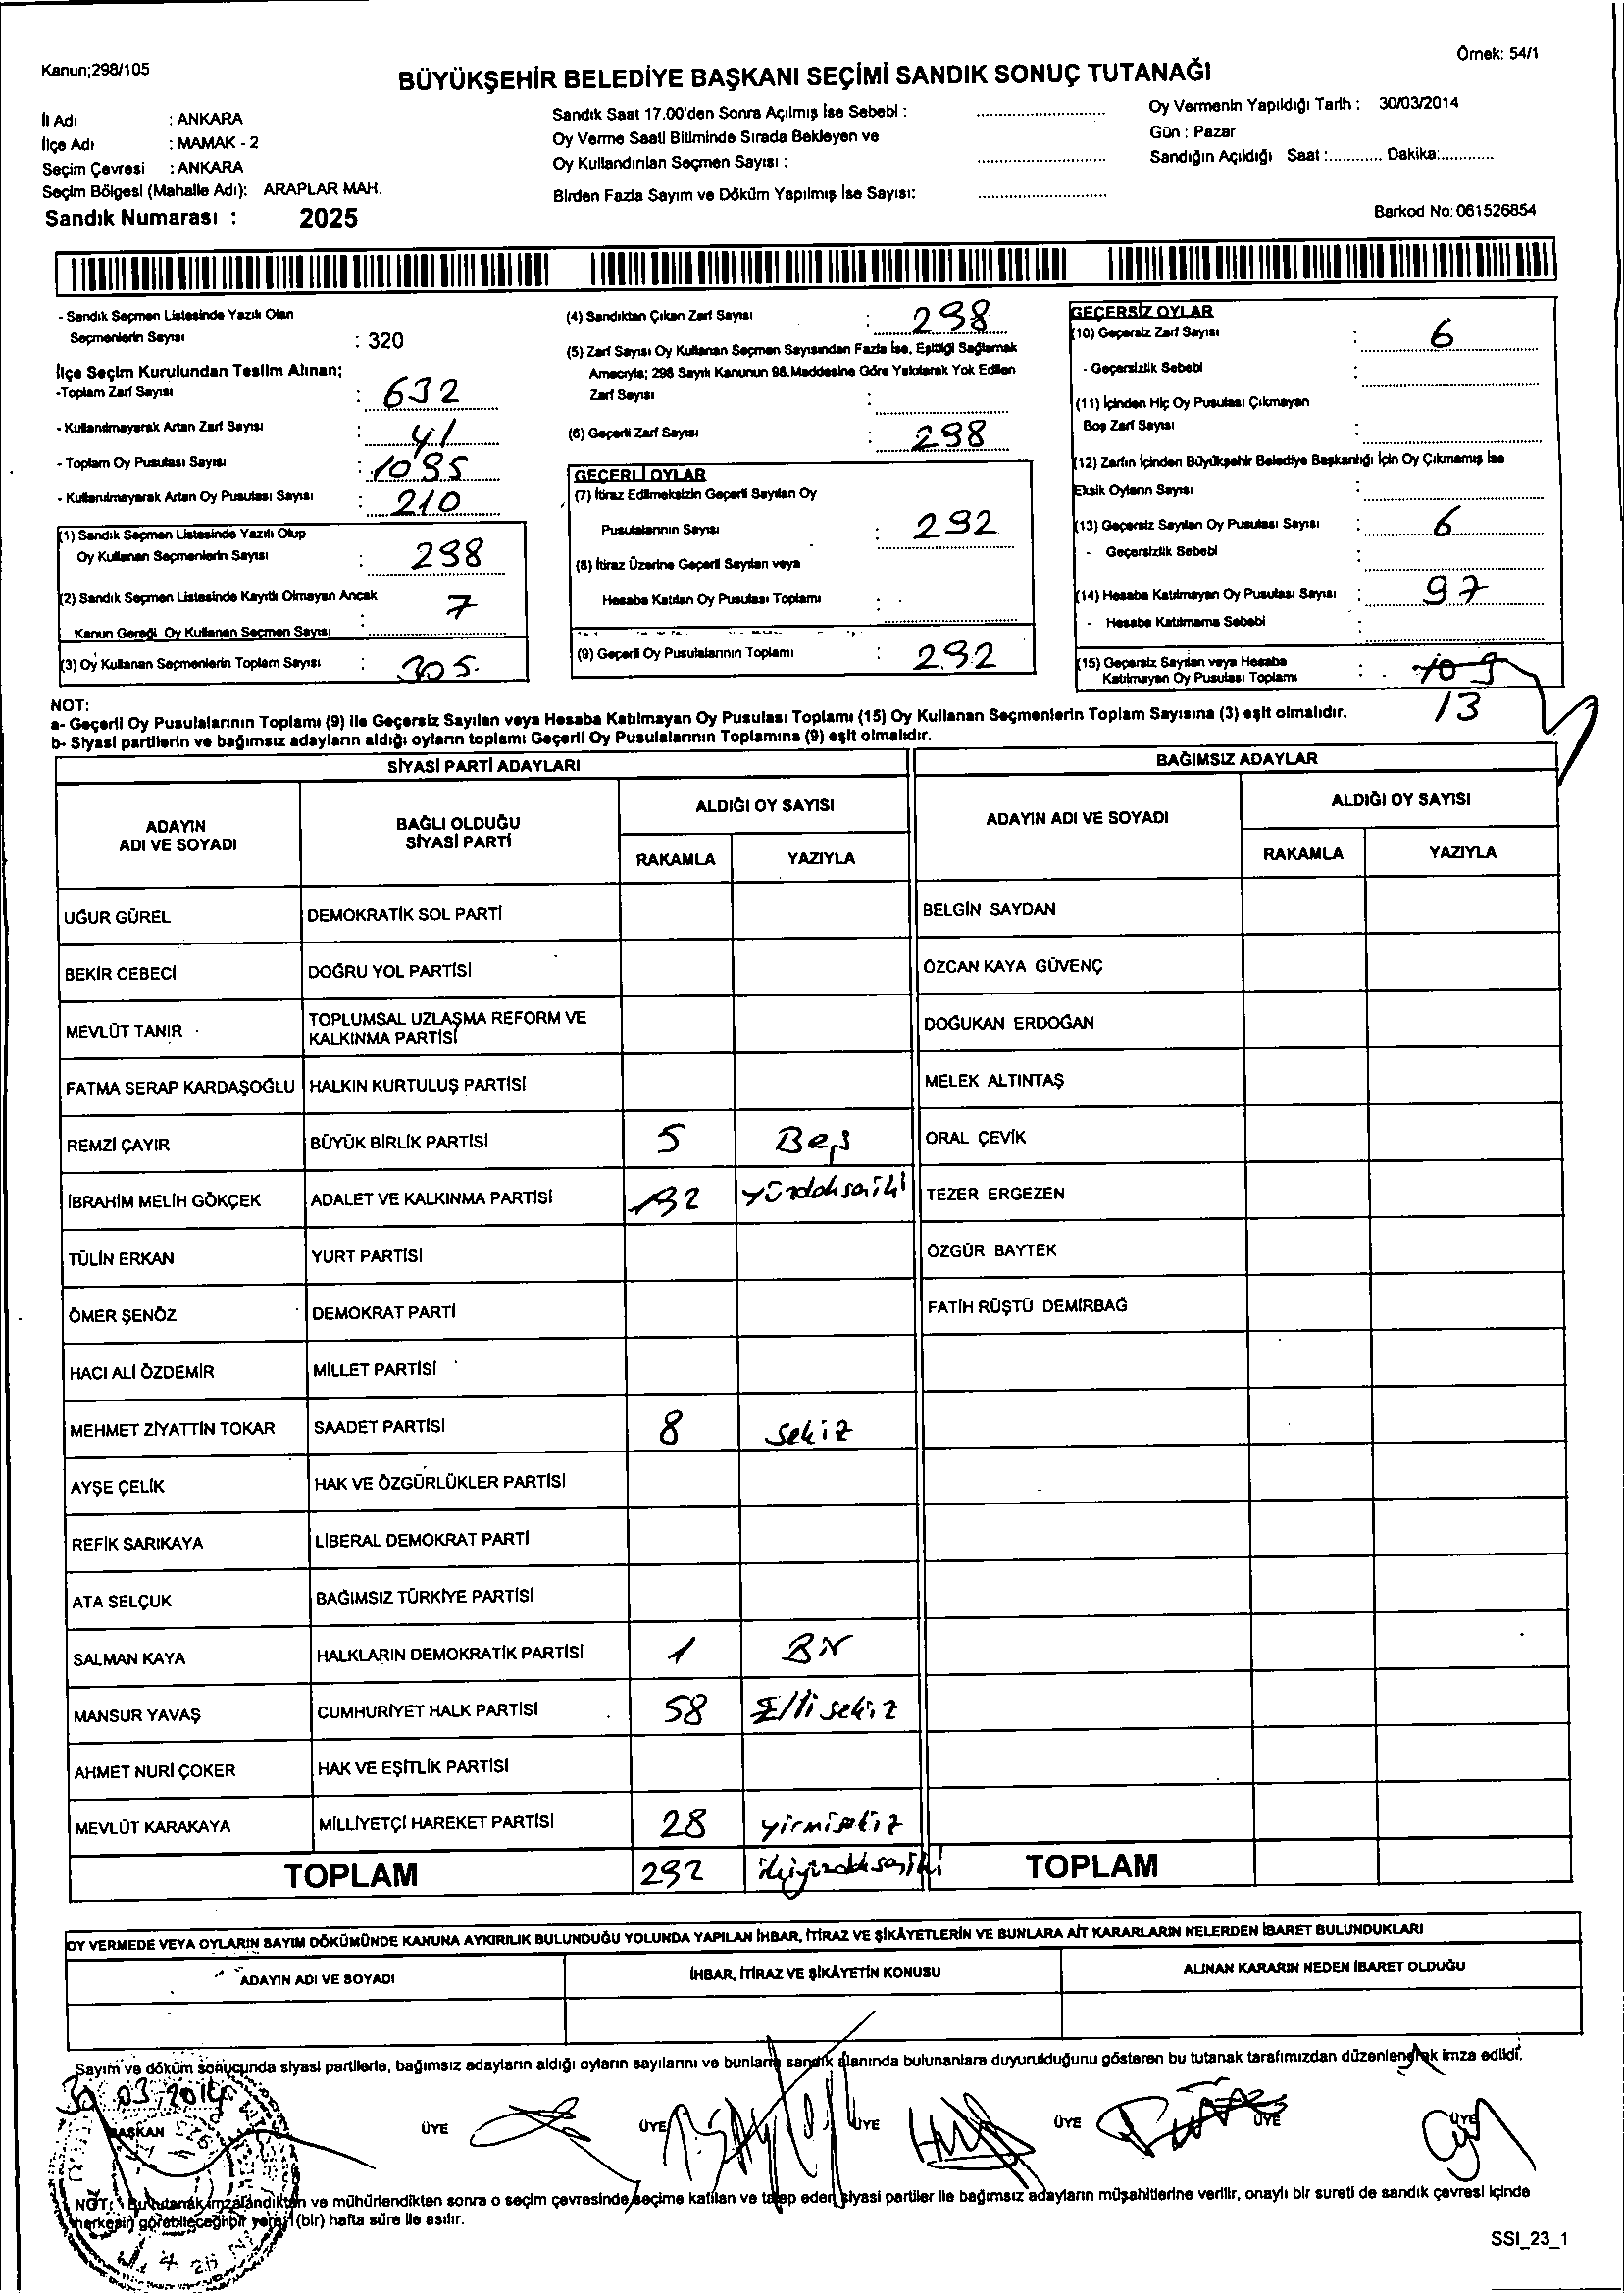 Kanun;298/105
Örnek: 54/1
BÜYÜKŞEHİR BELEDİYE BAŞKANI SEÇİMİ SANDIK SONUÇ TUTANAĞI
İl Adı : ANKARA
İlçe Adı : MAMAK - 2
Seçim Çevresi : ANKARA
Seçim Bölgesi (Mahalle Adı): ARAPLAR MAH.
Sandık Numarası : 2025
Sandık Saat 17.00'den Sonra Açılmış İse Sebebi :
Oy Verme Saati Bitiminde Sırada Bekleyen ve
Oy Kullandırılan Seçmen Sayısı :
Birden Fazla Sayım ve Döküm Yapılmış İse Sayısı:
Oy Vermenin Yapıldığı Tarih : 30/03/2014
Gün : Pazar
Sandığın Açıldığı Saat :............ Dakika:............
Barkod No: 061526854
- Sandık Seçmen Listesinde Yazılı Olan
Seçmenlerin Sayısı : 320
İlçe Seçim Kurulundan Teslim Alınan;
-Toplam Zarf Sayısı : 632
- Kullanılmayarak Artan Zarf Sayısı : 41
- Toplam Oy Pusulası Sayısı : 1095
- Kullanılmayarak Artan Oy Pusulası Sayısı : 210
(1) Sandık Seçmen Listesinde Yazılı Olup
Oy Kullanan Seçmenlerin Sayısı : 298
(2) Sandık Seçmen Listesinde Kayıtlı Olmayan Ancak
Kanun Gereği Oy Kullanan Seçmen Sayısı : 7
(3) Oy Kullanan Seçmenlerin Toplam Sayısı : 305.
(4) Sandıktan Çıkan Zarf Sayısı : 298
(5) Zarf Sayısı Oy Kullanan Seçmen Sayısından Fazla İse, Eşitliği Sağlamak
Amacıyla; 298 Sayılı Kanunun 98.Maddesine Göre Yakılarak Yok Edilen
Zarf Sayısı :
(6) Geçerli Zarf Sayısı : 298
GEÇERLİ OYLAR
(7) İtiraz Edilmeksizin Geçerli Sayılan Oy
Pusulalarının Sayısı : 292
(8) İtiraz Üzerine Geçerli Sayılan veya
Hesaba Katılan Oy Pusulası Toplamı :
(9) Geçerli Oy Pusulalarının Toplamı : 292
GEÇERSİZ OYLAR
(10) Geçersiz Zarf Sayısı : 6
- Geçersizlik Sebebi :
(11) İçinden Hiç Oy Pusulası Çıkmayan
Boş Zarf Sayısı :
(12) Zarfın İçinden Büyükşehir Belediye Başkanlığı İçin Oy Çıkmamış İse
Eksik Oyların Sayısı :
(13) Geçersiz Sayılan Oy Pusulası Sayısı : 6
- Geçersizlik Sebebi :
(14) Hesaba Katılmayan Oy Pusulası Sayısı : 97
- Hesaba Katılmama Sebebi :
(15) Geçersiz Sayılan veya Hesaba
Katılmayan Oy Pusulası Toplamı : 109
13
NOT:
a- Geçerli Oy Pusulalarının Toplamı (9) ile Geçersiz Sayılan veya Hesaba Katılmayan Oy Pusulası Toplamı (15) Oy Kullanan Seçmenlerin Toplam Sayısına (3) eşit olmalıdır.
b- Siyasi partilerin ve bağımsız adayların aldığı oyların toplamı Geçerli Oy Pusulalarının Toplamına (9) eşit olmalıdır.
SİYASİ PARTİ ADAYLARI
BAĞIMSIZ ADAYLAR
ADAYIN
ADI VE SOYADI
BAĞLI OLDUĞU
SİYASİ PARTİ
ALDIĞI OY SAYISI
RAKAMLA YAZIYLA
ADAYIN ADI VE SOYADI
ALDIĞI OY SAYISI
RAKAMLA YAZIYLA
UĞUR GÜREL DEMOKRATİK SOL PARTİ BELGİN SAYDAN
BEKİR CEBECİ DOĞRU YOL PARTİSİ ÖZCAN KAYA GÜVENÇ
MEVLÜT TANIR TOPLUMSAL UZLAŞMA REFORM VE
KALKINMA PARTİSİ DOĞUKAN ERDOĞAN
FATMA SERAP KARDAŞOĞLU HALKIN KURTULUŞ PARTİSİ MELEK ALTINTAŞ
REMZİ ÇAYIR BÜYÜK BİRLİK PARTİSİ 5 Beş ORAL ÇEVİK
İBRAHİM MELİH GÖKÇEK ADALET VE KALKINMA PARTİSİ 192 yüzdoksaniki TEZER ERGEZEN
TÜLİN ERKAN YURT PARTİSİ ÖZGÜR BAYTEK
ÖMER ŞENÖZ DEMOKRAT PARTİ FATİH RÜŞTÜ DEMİRBAĞ
HACI ALİ ÖZDEMİR MİLLET PARTİSİ
MEHMET ZİYATTİN TOKAR SAADET PARTİSİ 8 Sekiz
AYŞE ÇELİK HAK VE ÖZGÜRLÜKLER PARTİSİ
REFİK SARIKAYA LİBERAL DEMOKRAT PARTİ
ATA SELÇUK BAĞIMSIZ TÜRKİYE PARTİSİ
SALMAN KAYA HALKLARIN DEMOKRATİK PARTİSİ 1 Bir
MANSUR YAVAŞ CUMHURİYET HALK PARTİSİ 58 Elli sekiz
AHMET NURİ ÇOKER HAK VE EŞİTLİK PARTİSİ
MEVLÜT KARAKAYA MİLLİYETÇİ HAREKET PARTİSİ 28 yirmisekiz
TOPLAM 292 ikiyüzdoksaniki TOPLAM
OY VERMEDE VEYA OYLARIN SAYIM DÖKÜMÜNDE KANUNA AYKIRILIK BULUNDUĞU YOLUNDA YAPILAN İHBAR, İTİRAZ VE ŞİKÂYETLERİN VE BUNLARA AİT KARARLARIN NELERDEN İBARET BULUNDUKLARI
ADAYIN ADI VE SOYADI İHBAR, İTİRAZ VE ŞİKÂYETİN KONUSU ALINAN KARARIN NEDEN İBARET OLDUĞU
Sayım ve döküm sonucunda siyasi partilerle, bağımsız adayların aldığı oyların sayılarını ve bunların sandık alanında bulunanlara duyurulduğunu gösteren bu tutanak tarafımızdan düzenlenerek imza edildi.
30.03.2014
BAŞKAN ÜYE ÜYE ÜYE ÜYE ÜYE ÜYE
NOT: Bu tutanak imzalandıktan ve mühürlendikten sonra o seçim çevresinde seçime katılan ve talep eden siyasi partiler ile bağımsız adayların müşahitlerine verilir, onaylı bir sureti de sandık çevresi içinde
herkesin görebileceği bir yere 1 (bir) hafta süre ile asılır.
SSI_23_1